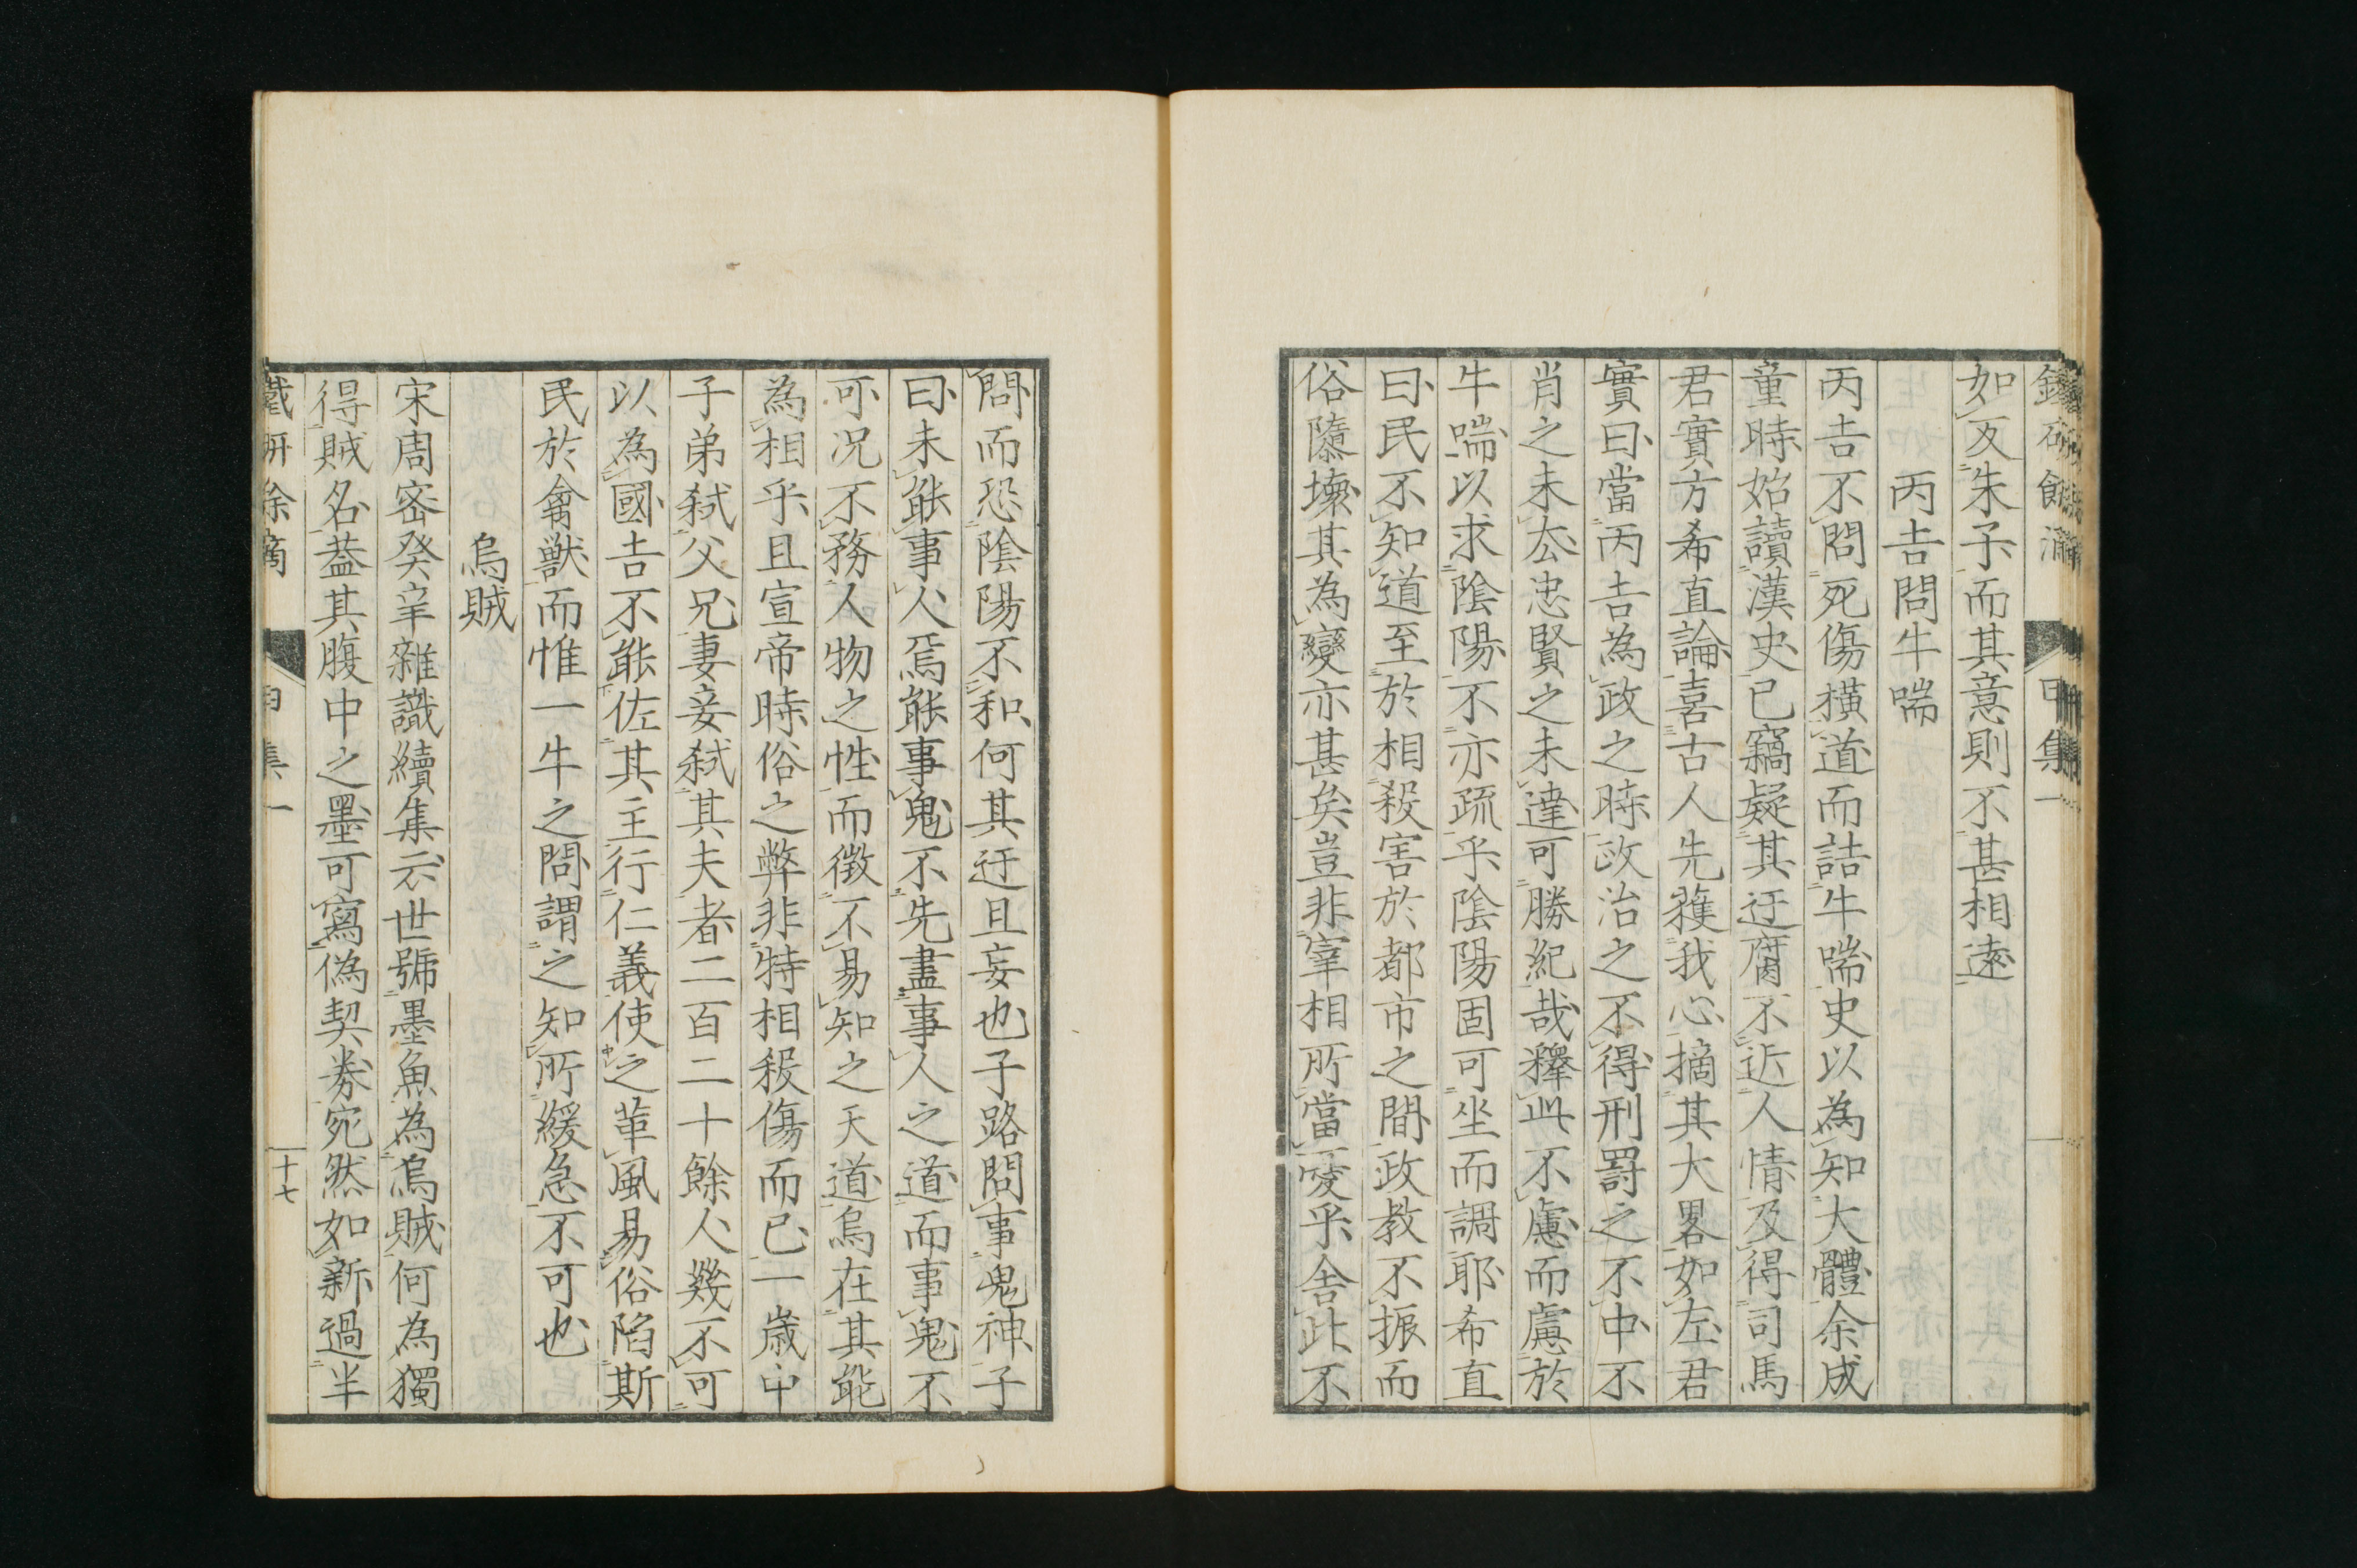 如反朱子而其意則不甚相遠
丙吉問牛喘
丙吉不問死傷橫道而詰牛喘史以為知大體余成
童時始讀漢史已竊疑其迂腐不近人情及得司馬
君實方希直論喜古人先獲我心摘其大畧如左君
實曰當丙吉為政之時政治之不得刑罰之不中不
肖之未去忠賢之未達可勝紀哉釋此不慮而慮於
牛喘以求陰陽不亦疏乎陰陽固可坐而調耶希直
曰民不知道至於相殺害於都市之間政教不振而
俗隳壞其為變亦甚矣豈非宰相所當憂乎舍此不
問而恐陰陽不和何其迂且妄也子路問事鬼神子
曰未能事人焉能事鬼不先盡事人之道而事鬼不
可况不務人物之性而徵不易知之天道烏在其能
為相乎且宣帝時俗之弊非特相殺傷而已一歲中
子弟弑父兄妻妾弑其夫者二百二十餘人幾不可
以為國吉不能佐其主行仁義使之革風易俗陷斯
民於禽獸而惟一牛之問謂之知所緩急不可也
烏賊
宋周密癸辛雜識續集云世號墨魚為烏賊何為獨
得賊名葢其腹中之墨可寫偽契券宛然如新過半
鐵研餘滴
甲集一
十七